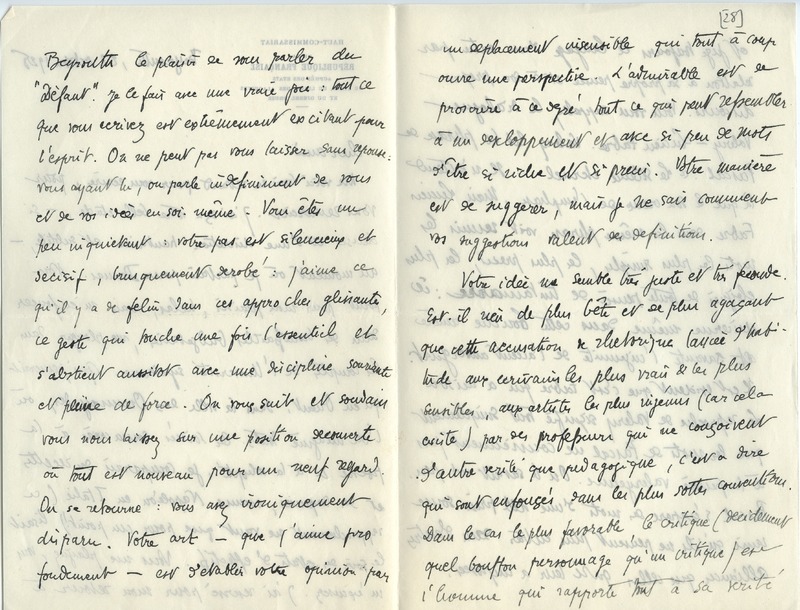 Beyrouth le plaisir de vous parler du
"Défaut". Je le fais avec une vraie joie : tout ce
que vous écrivez est extrêmement excitant pour
l'esprit. On ne peut pas vous laisser sans réponse :
vous ayant lu, on parle indéfiniment de vous
et de vos idées en soi-même. Vous êtes un
peu inquiétant : votre pas est silencieux et
décisif, brusquement dérobé : j'aime ce
qu'il y a de félin dans ces approches glissantes,
ce geste qui touche une fois l'essentiel et
s'abstient aussitôt avec une discipline souriante
et pleine de force. On vous suit et soudain
vous nous laissez sur une position découverte
où tout est nouveau pour un neuf regard.
On se retourne : vous avez ironiquement
disparu. Votre art — que j'aime pro
fondément — est d'établir votre opinion par
[28]
un déplacement insensible qui tout à coup
ouvre une perspective. L'admirable est de
proscrire à ce degré tout ce qui peut ressembler
à un développement et avec si peu de mots
d'être si riche et si précis. Votre manière
est de suggérer, mais je ne sais comment
vos suggestions valent des définitions.
Votre idée me semble très juste et très féconde.
Est-il rien de plus bête et de plus agaçant
que cette accusation de rhétorique lancée d'habi-
tude aux écrivains les plus vrais et les plus
sensibles, aux artistes les plus ingénus (car cela
existe) par des professeurs qui ne conçoivent
d'autre vérité que pédagogique, c'est à dire
qui sont enfoncés dans les plus sottes conventions.
Dans le cas le plus favorable le critique (décidément
quel bouffon personnage qu'un critique) est
l'homme qui rapporte tout à sa vérité
HAUT-COMMISSARIAT
RÉPUBLIQUE FRANÇAISE